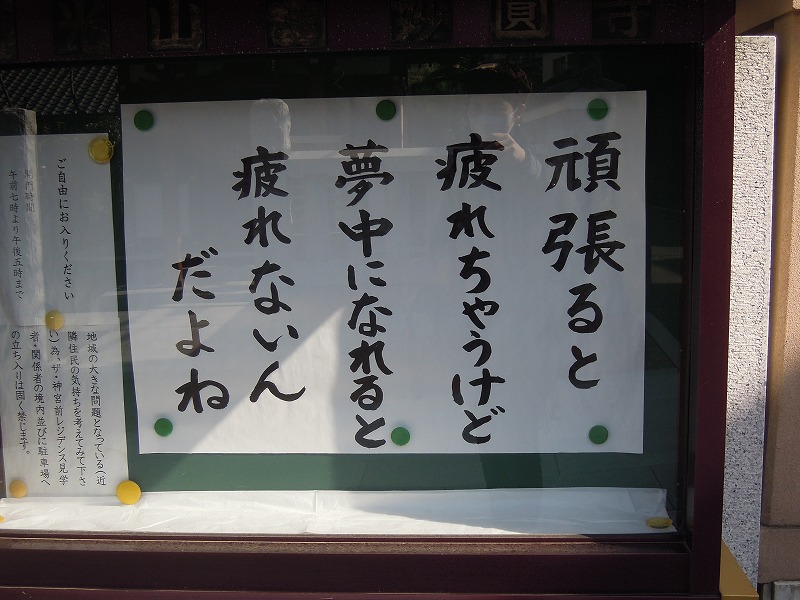 頑張ると
疲れちゃうけど
夢中になれると
疲れないん
だよね
ご自由にお入りください
開門時間
午前七時より午後五時まで
地域の大きな問題となっている（近
隣住民の気持ちを考えてみて下さ
い）為、ザ・神宮前レジデンス見学
者・関係者の境内並びに駐車場へ
の立ち入りは固く禁じます。